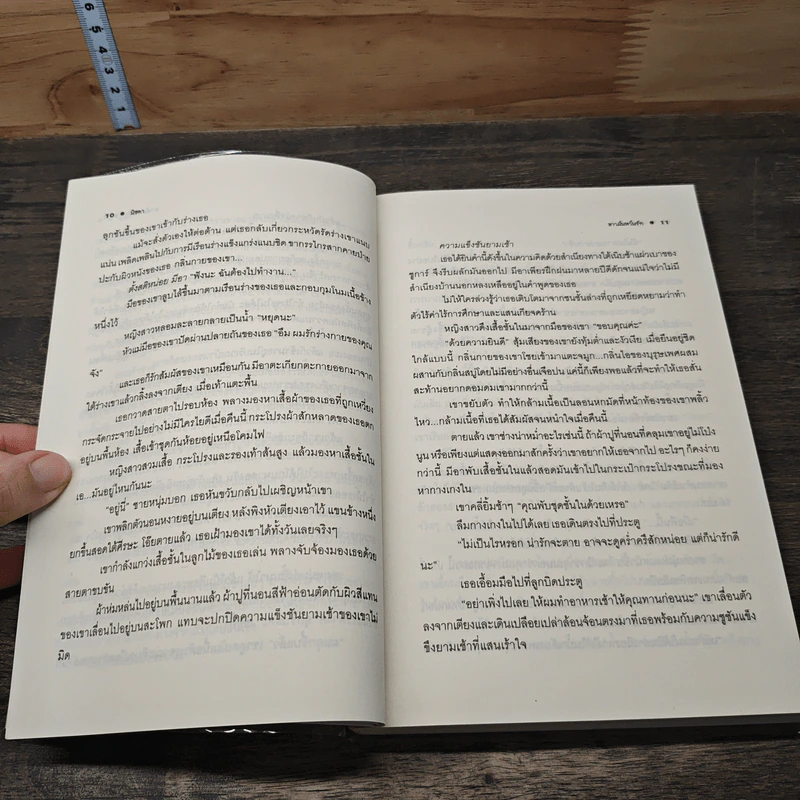 6
5
4
3
2
1
10 ● มิชตา
ลูกชันขึ้นของเขาเข้ากับร่างเธอ
แม้จะสั่งตัวเองให้ต่อต้าน แต่เธอกลับเกี่ยวกระหวัดรัดร่างเขาแนบ
แน่น เพลิดเพลินไปกับการมีเรือนร่างแข็งแกร่งแนบชิด ขากรรไกรสากคายป่าย
ปะกับผิวหนังของเธอ กลิ่นกายของเขา...
ตั้งสติหน่อย มีอา "ฟังนะ ฉันต้องไปทำงาน..."
มือของเขาลูบไล้ขึ้นมาตามเรือนร่างของเธอและกอบกุมโนมเนื้อข้าง
หนึ่งไว้
หญิงสาวหลอมละลายกลายเป็นน้ำ "หยุดนะ"
หัวแม่มือของเขาปัดผ่านปลายถันของเธอ "อืม ผมรักร่างกายของคุณ
จัง"
และเธอก็รักสัมผัสของเขาเหมือนกัน มีอาตะเกียกตะกายออกมาจาก
ใต้ร่างเขาแล้วกลิ้งลงจากเตียง เมื่อเท้าแตะพื้น
เธอกวาดสายตาไปรอบห้อง พลางมองหาเสื้อผ้าของเธอที่ถูกเหวี่ยง
กระจัดกระจายไปอย่างไม่มีใครไยดีเมื่อคืนนี้ กระโปรงผ้าสักหลาดของเธอตก
อยู่บนพื้นห้อง เสื้อเข้าชุดกันห้อยอยู่เหนือโคมไฟ
หญิงสาวสวมเสื้อ กระโปรงและรองเท้าส้นสูง แล้วมองหาเสื้อชั้นใน
เอ...มันอยู่ไหนกันนะ
"อยู่นี่" ชายหนุ่มบอก เธอหันขวับกลับไปเผชิญหน้าเขา
เขาพลิกตัวนอนหงายอยู่บนเตียง หลังพิงหัวเตียงเอาไว้ แขนข้างหนึ่ง
ยกขึ้นสอดใต้ศีรษะ โอ๊ยตายแล้ว เธอเฝ้ามองเขาได้ทั้งวันเลยจริงๆ
เขากำลังแกว่งเสื้อชั้นในลูกไม้ของเธอเล่น พลางจับจ้องมองเธอด้วย
สายตาขบขัน
ผ้าห่มหล่นไปอยู่บนพื้นนานแล้ว ผ้าปูที่นอนสีฟ้าอ่อนตัดกับผิวสีแทน
ของเขาเลื่อนไปอยู่บนสะโพก แทบจะปกปิดความแข็งขันยามเช้าของเขาไม่
มิด
● 11
ความแข็งขันยามเช้า
เธอได้ยินคำนี้ดังขึ้นในความคิดด้วยสำเนียงทางใต้เนิบช้าแผ่วเบาของ
ชูการ์ จึงรีบผลักมันออกไป มีอาเพียรฝึกฝนมาหลายปีดีดักจนแน่ใจว่าไม่มี
สำเนียงบ้านนอกหลงเหลืออยู่ในคำพูดของเธอ
ไม่ให้ใครล่วงรู้ว่าเธอเติบโตมาจากชนชั้นล่างที่ถูกเหยียดหยามว่าทำ
ตัวไร้ค่าไร้การศึกษาและแสนเกียจคร้าน
หญิงสาวดึงเสื้อชั้นในมาจากมือของเขา "ขอบคุณค่ะ"
"ด้วยความยินดี" สุ้มเสียงของเขายังทุ้มต่ำและงัวเงีย เมื่อยืนอยู่ชิด
ใกล้แบบนี้ กลิ่นกายของเขาโชยเข้ามาแตะจมูก...กลิ่นไอของบุรุษเพศผสม
ผสานกับกลิ่นสบู่โดยไม่มีอย่างอื่นเจือปน แค่นี้ก็เพียงพอแล้วที่จะทำให้เธอสั่น
สะท้านอยากดอมดมเขามากกว่านี้
เขาขยับตัว ทำให้กล้ามเนื้อเป็นลอนหกมัดที่หน้าท้องของเขาพลิ้ว
ไหว...กล้ามเนื้อที่เธอได้สัมผัสจนหนำใจเมื่อคืนนี้
ตายแล้ว เขาช่างน่าหม่ำอะไรเช่นนี้ ถ้าผ้าปูที่นอนที่คลุมเขาอยู่ไม่โป่ง
นูน หรือเพียงแต่แสดงออกมาสักครั้งว่าเขาอยากให้เธอจากไป อะไรๆ ก็คงง่าย
กว่านี้ มีอาพับเสื้อชั้นในแล้วสอดมันเข้าไปในกระเป๋ากระโปรงขณะที่มอง
หากางเกงใน
เขาคลี่ยิ้มช้าๆ "คุณพับชุดชั้นในด้วยเหรอ"
ลืมกางเกงในไปได้เลย เธอเดินตรงไปที่ประตู
"ไม่เป็นไรหรอก น่ารักจะตาย อาจจะดูคร่ำครึสักหน่อย แต่ก็น่ารักดี
นะ"
เธอเอื้อมมือไปที่ลูกบิดประตู
"อย่าเพิ่งไปเลย ให้ผมทำอาหารเช้าให้คุณทานก่อนนะ" เขาเลื่อนตัว
ลงจากเตียงและเดินเปลือยเปล่าล้อนจ้อนตรงมาที่เธอพร้อมกับความชูชันแข็ง
ขึงยามเช้าที่แสนเร้าใจ